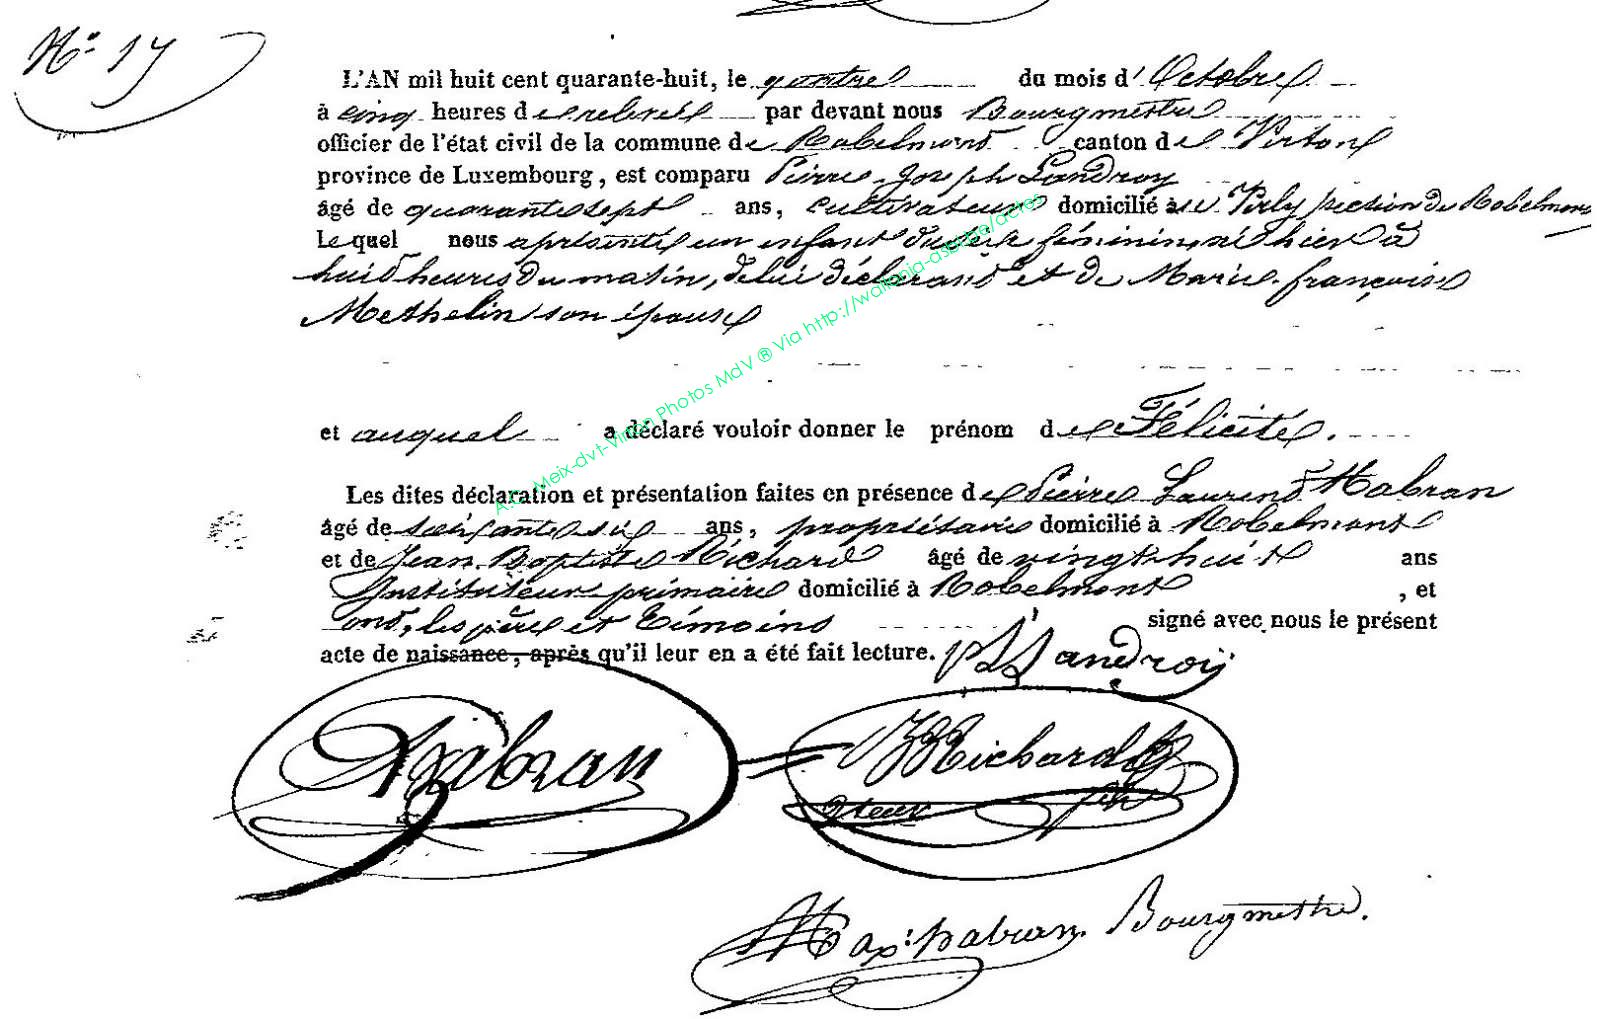 N° 17
L'AN mil huit cent quarante-huit, le quatre du mois d'Octobre
à cinq heures de relevée par devant nous Bourgmestre
officier de l'état civil de la commune de Robelmont canton de Virton
province de Luxembourg, est comparu Pierre Joseph Landroy
âgé de quarante sept ans, cultivateur domicilié à section de Robelmont
Lequel nous a présenté un enfant du sexe féminin, né hier à
huit heures du matin, de lui déclarant et de Marie françoise
Methelin son épouse
et auquel a déclaré vouloir donner le prénom de Félicité.
Les dites déclaration et présentation faites en présence de Pierre Laurent Habran
âgé de soixante six ans, propriétaire domicilié à Robelmont
et de Jean Baptiste Richard âgé de vingt huit ans
Instituteur primaire domicilié à Robelmont, et
ont, les père et témoins signé avec nous le présent
acte de naissance, après qu'il leur en a été fait lecture. Landroÿ
Habran Richard
Max: habran Bourgmestre.
A.C. Meix-dvt-Virton Photos MdV ® Via http://wallonia-asbl.be/actes